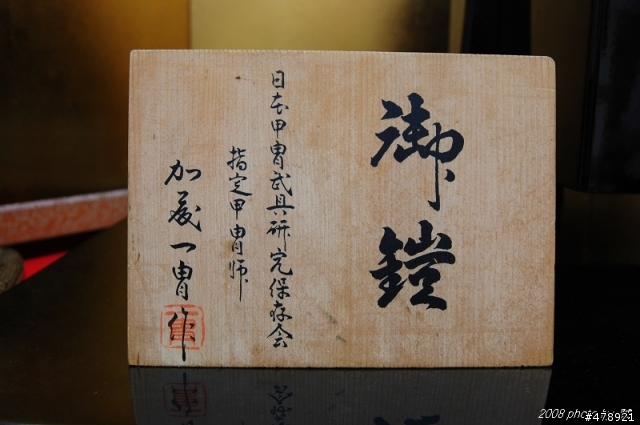 御鎧
日本甲冑武具研究保存会
指定甲冑師
加藤一冑作
2008 photo
#478921